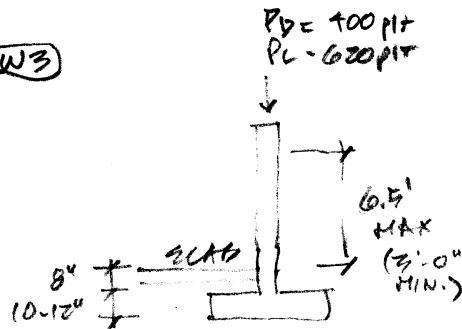 W3
PD = 400 plf
PL - 620 plf
6.5'
MAX
(3'-0"
MIN.)
SLAB
8"
10-12"